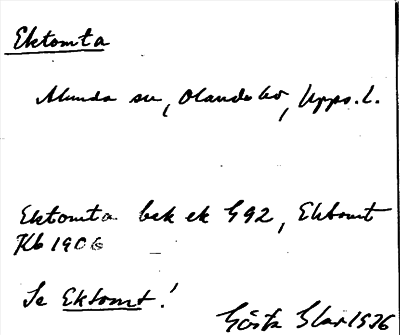 Ektomta
Alunda sn, Olands hd, Upps. l.
Ektomta bek ek G92, Ektomt
Kb 1906
Se Ektomt!
Gösta 1936